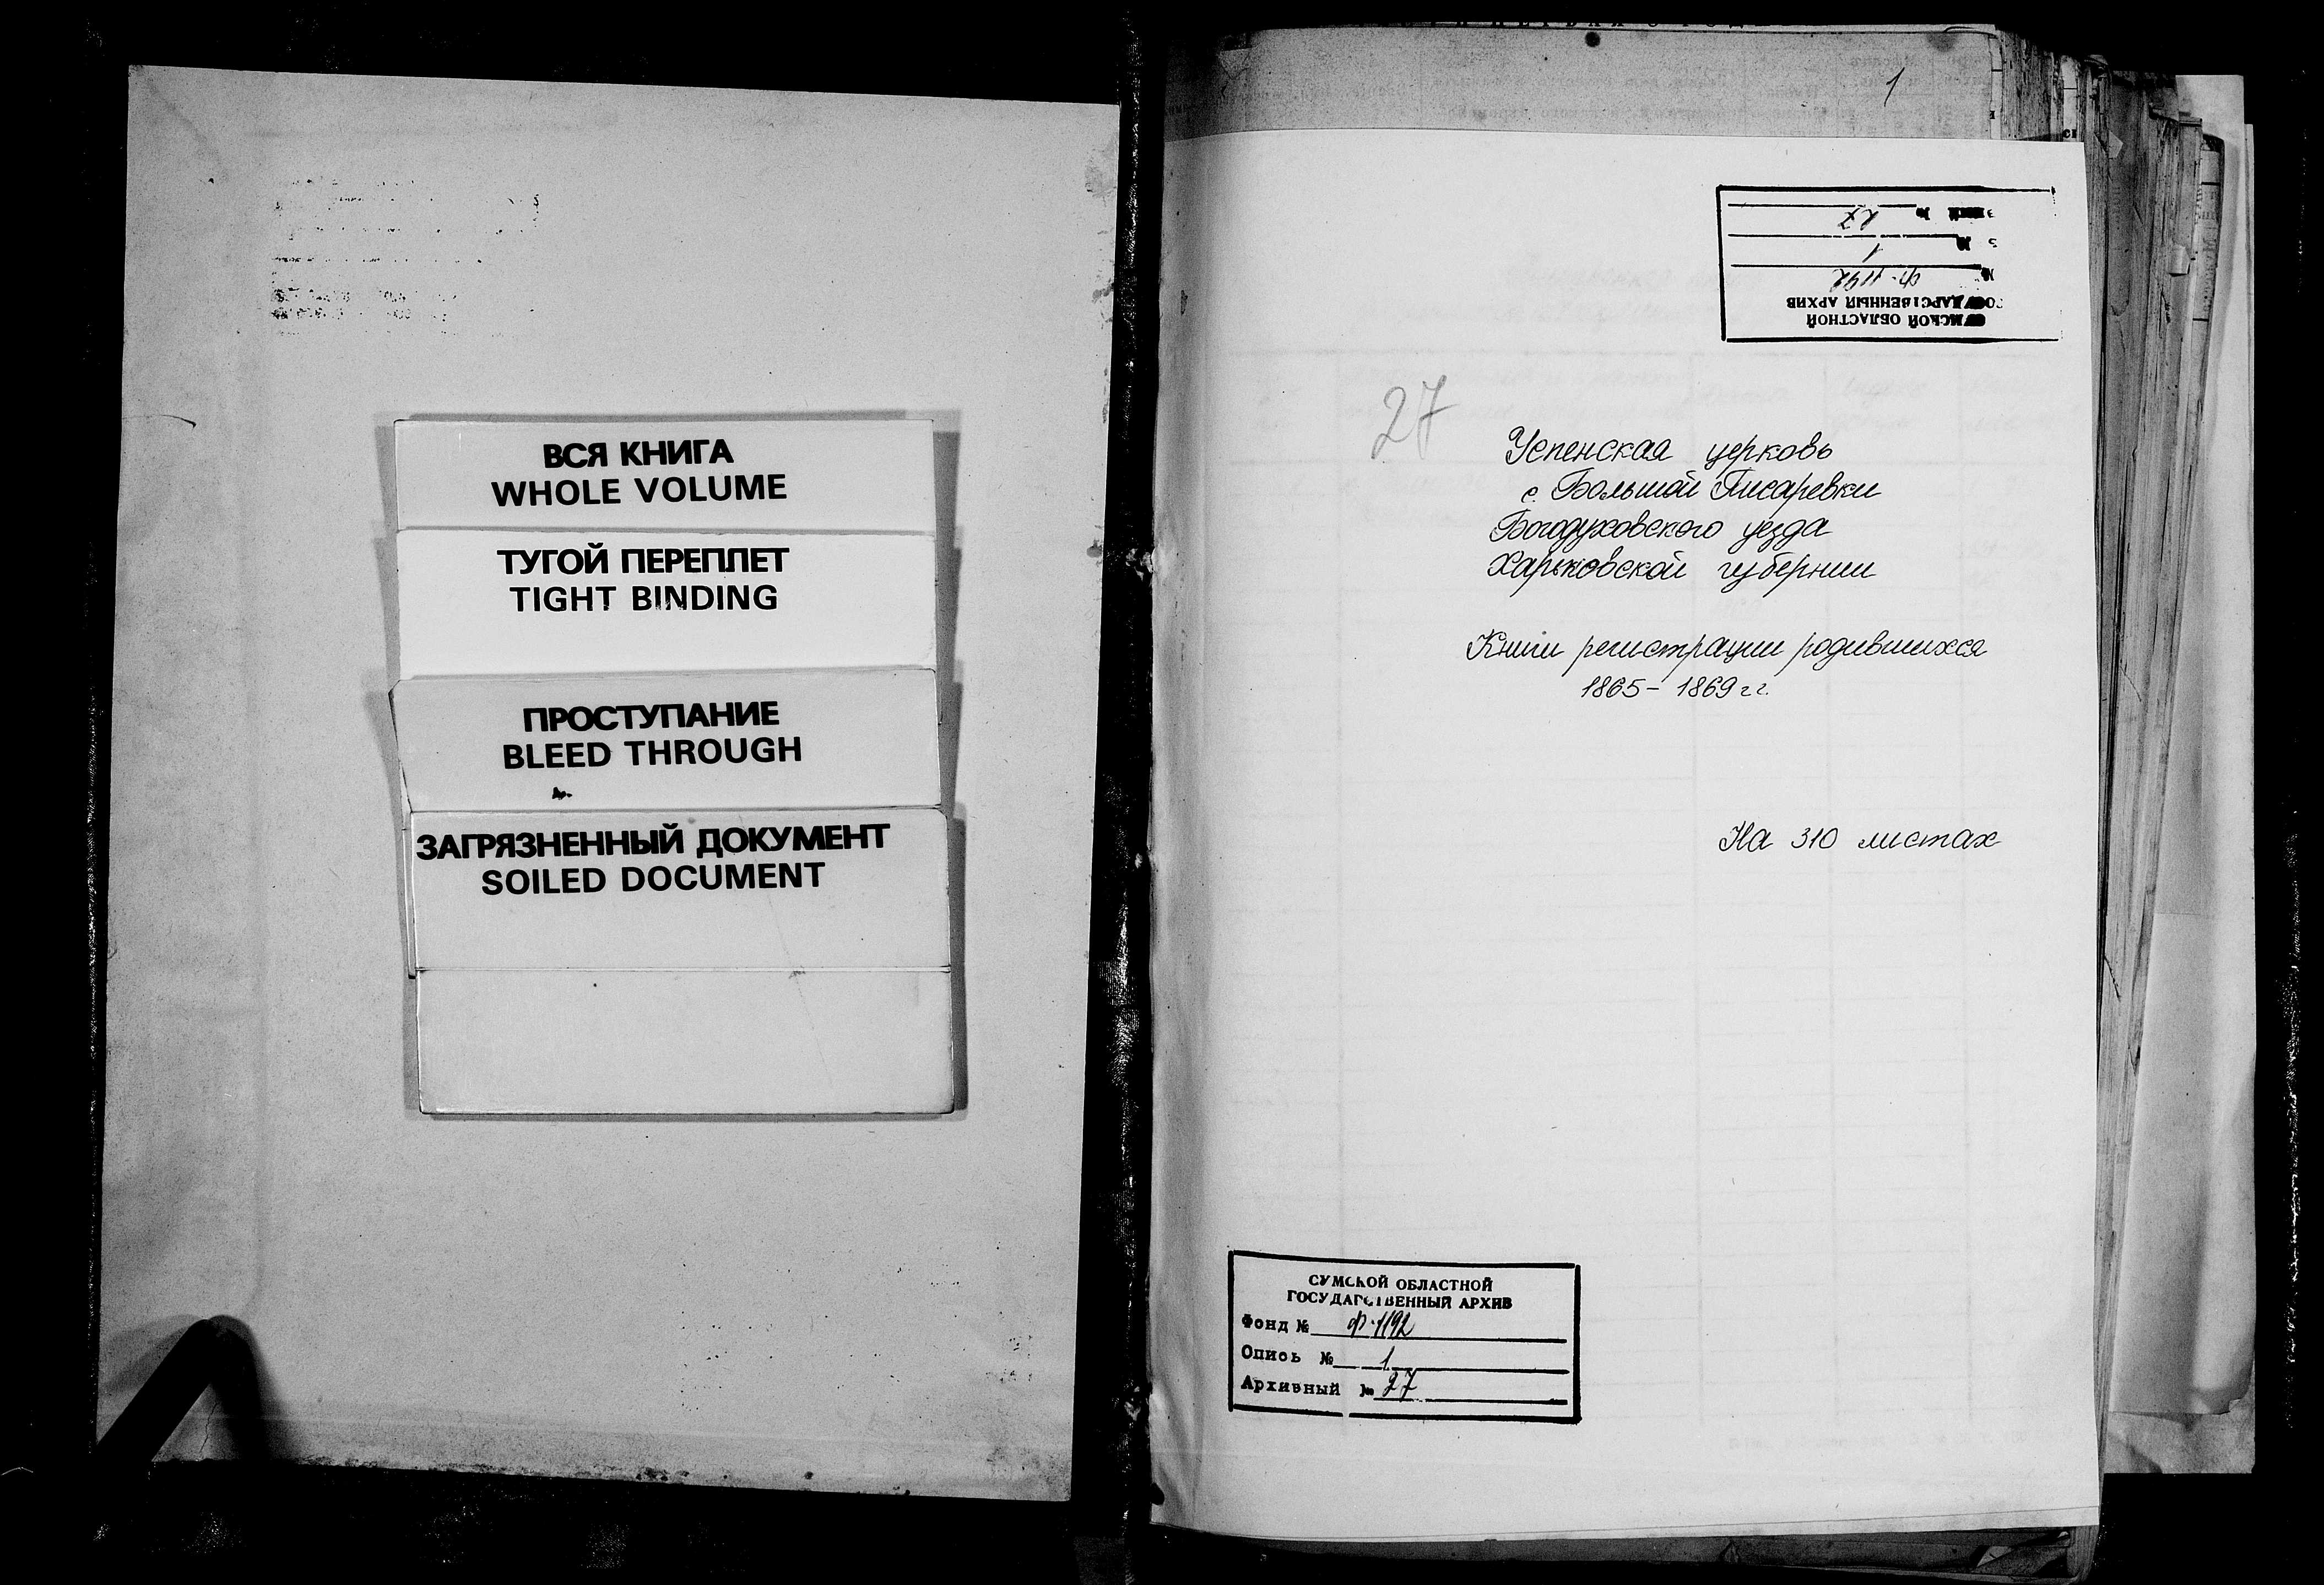 ВСЯ КНИГА
WHOLE VOLUME
ТУГОЙ ПЕРЕПЛЕТ
TIGHT BINDING
ПРОСТУПАНИЕ
BLEED THROUGH
ЗАГРЯЗНЕННЫЙ ДОКУМЕНТ
SOILED DOCUMENT
1
СУМСКОЙ ОБЛАСТНОЙ
ГОСУДАРСТВЕННЫЙ АРХИВ
№ Ф-1192
№ 1
№ 27
27
Успенская церковь
с. Большой Писаревки
Богодуховского уезда
Харьковской губернии
Книги регистрации родившихся
1865 – 1869 гг.
На 310 листах
СУМСКОЙ ОБЛАСТНОЙ
ГОСУДАРСТВЕННЫЙ АРХИВ
Фонд № Ф-1192
Опись № 1
Архивный № 27